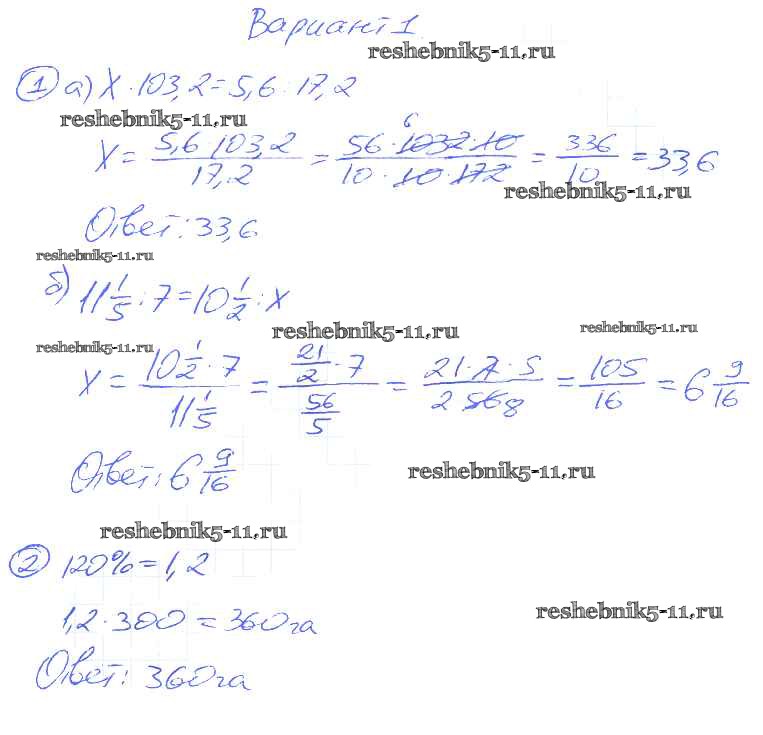 Вариант 1
reshebnik5-11.ru
① а) x : 103,2 = 5,6 : 17,2
reshebnik5-11.ru
x = 5,6 · 103,2 / 17,2 = 56 · 1032 · 10 / 10 · 10 · 172 = 336 / 10 = 33,6
6
reshebnik5-11.ru
Ответ: 33,6
reshebnik5-11.ru
б) 11 1/5 : 7 = 10 1/2 : x
reshebnik5-11.ru
reshebnik5-11.ru
reshebnik5-11.ru
x = 10 1/2 · 7 / 11 1/5 = 21/2 · 7 / 56/5 = 21 · 7 · 5 / 2 56 8 = 105 / 16 = 6 9/16
Ответ: 6 9/16
reshebnik5-11.ru
reshebnik5-11.ru
② 120% = 1,2
1,2 · 300 = 360 га
reshebnik5-11.ru
Ответ: 360 га